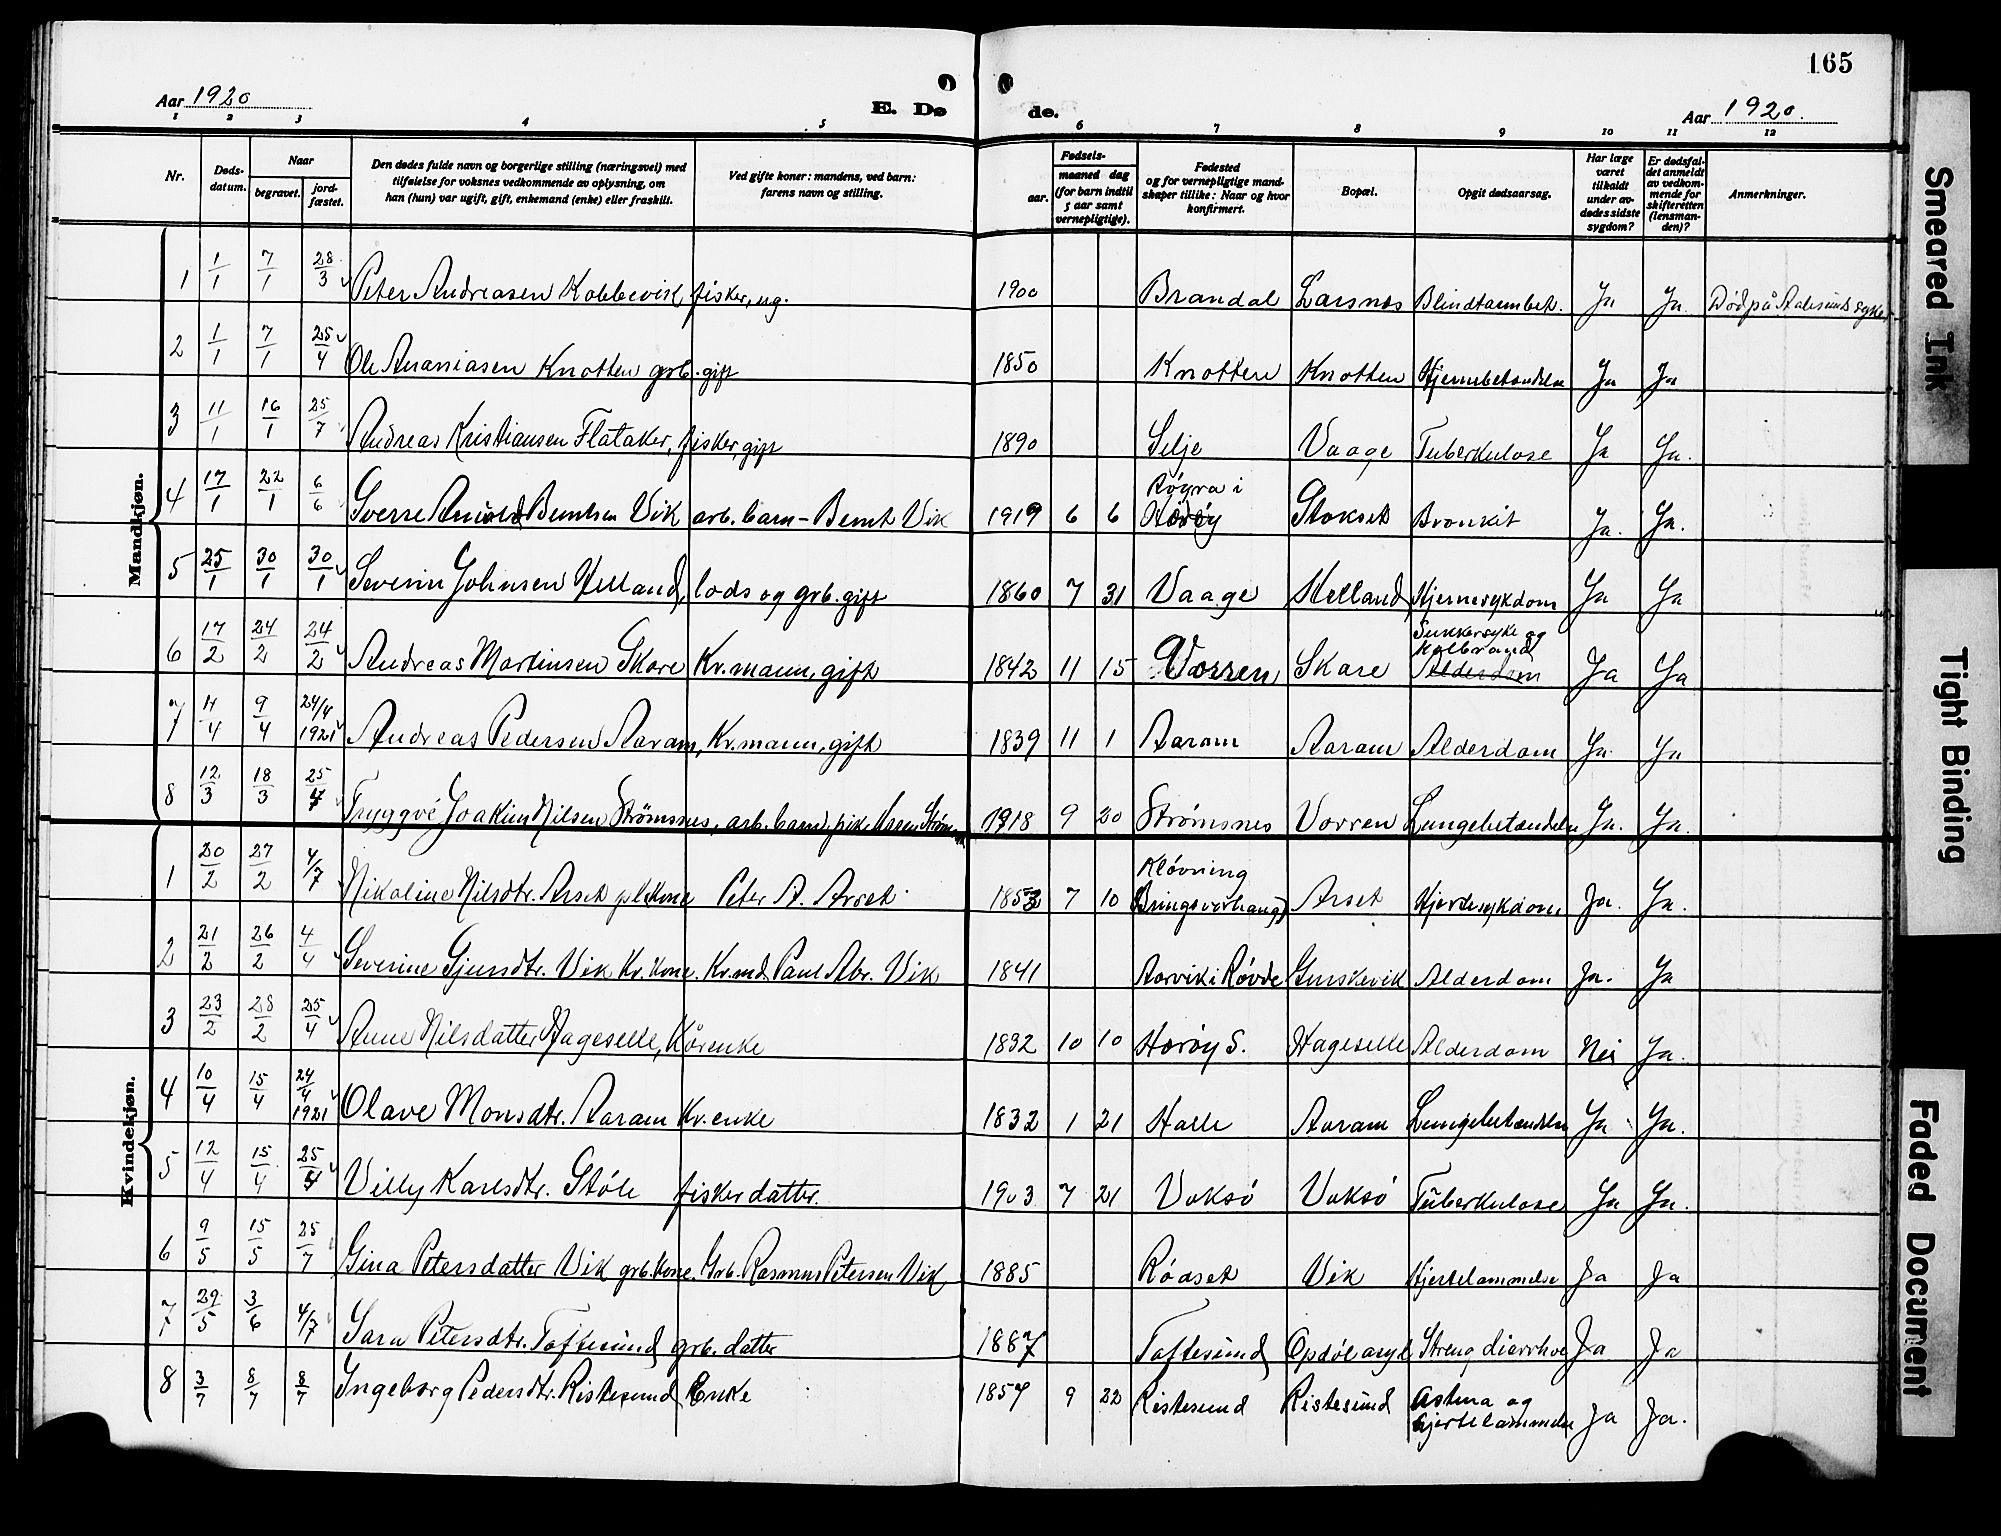 165
Aar 1920
E. Dø
de.
Aar 1920.
1 2 3 4 5 6 7 8 9 10 11 12
Nr.
Døds-
datum.
Naar
begravet.
jord-
fæstet.
Den dødes fulde navn og borgerlige stilling (næringsvei) med
tilføielse for voksnes vedkommende av oplysning, om
han (hun) var ugift, gift, enkemand (enke) eller fraskilt.
Ved gifte koner: mandens, ved barn:
farens navn og stilling.
Fødsels-
aar.
maaned dag
(for barn indtil
5 aar samt
vernepligtige).
Fødested
og for vernepligtige mand-
skaper tillike: Naar og hvor
konfirmert.
Bopæl.
Opgit dødsaarsag.
Har læge
været
tilkaldt
under av-
dødes sidste
sygdom?
Er dødsfal-
det anmeldt
av vedkom-
mende for
skifteretten
(lensman-
den)?
Anmerkninger.
Mandkjøn.
1 1/1 7/1 28/3 Peter Andreasen Kobbevik fisker, ug. 1900 Brandal Larsnes Blindtarmbet. Ja Ja. Død på Aalesund syke
2 1/1 7/1 25/4 Ole Ananiasen Knotten grb. gift 1850 Knotten Knotten Hjernebetændelse Ja Ja
3 11/1 16/1 25/7 Andreas Kristiansen Flataker, fisker, gift 1890 Selje Vaage Tuberkulose Ja Ja.
4 17/1 22/1 6/6 Sverre Arnold Berntsen Vik arb. barn - Bernt Vik 1919 6 6 Røyra i Herøy Stokset Bronkit Ja. Ja.
5 25/1 30/1 30/1 Severin Johnsen Helland, lods og grb. gift 1860 7 31 Vaage Helland, Hjernesykdom Ja Ja
6 17/2 24/2 24/2 Andreas Martinsen Skare Kr.mann, gift 1842 11 15 Vorren Skare Sukkersyke og
Kolbrand
Alderdom Ja Ja
7 4/4 9/4 24/4 1921 Andreas Pedersen Aaram, Kr.mann, gift 1839 11 1 Aaram Aaram Alderdom Ja. Ja
8 12/3 18/3 25/4 Tryggve Joakim Nilsen Strømsnes, arb. barn, 1918 9 20 Strømsnes Vorren Lungebetændelse Ja. Ja.
Kvindekjøn.
1 20/2 27/2 4/7 Nikoline Nilsdtr. Arset Peter A. Arset. 1853 7 10 Kløvning
Arset Hjertesykdom Ja. Ja.
2 21/2 26/2 4/4 Severine Gjersdtr. Vik Kr. kone. Kr.md. Paul Abr. Vik 1841 Aarvik i Røvde Gurskevik Alderdom Ja. Ja
3 23/2 28/2 25/4 Anne Nilsdatter Hageselle, Kårenke 1832 10 10 Herøy S. Hageselle Alderdom Nei Ja.
4 10/4 15/4 24/4 1921 Olave Monsdtr. Aaram Kr. enke 1832 1 21 Halle Aaram Lungebetændelse Ja Ja.
5 12/4 15/4 25/4 Villy Karlsdtr. Støle fisker datter. 1903 7 21 Voksø Voksø Tuberkulose Ja Ja.
6 9/5 15/5 25/7 Gina Petersdatter Vik grb. kone. Grb. Rasmus Petersen Vik 1885 Rødset Vik Hjertelammelse Ja Ja
7 29/5 3/6 4/7 Sara Petersdtr. Toftesund grb. datter 1887 Toftesund Opdøl asyl Streng diarrhoe Ja Ja
8 3/7 8/7 8/7 Ingeborg Pedersdtr. Ristesund Enke 1857 9 22 Ristesund Ristesund Astma og
hjertelammelse Ja Ja.
Smeared Ink
Tight Binding
Faded Document